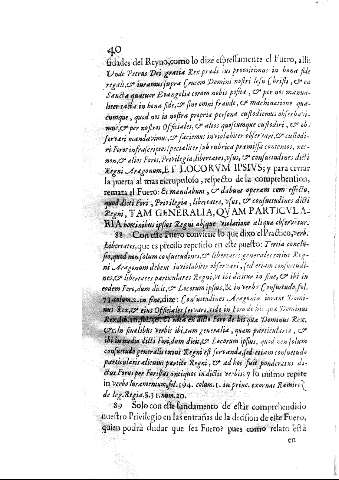 40
sidades del Reyno, como lo dize expressamente el Fuero, alli
Unde Petrus Dei gratia Rex prædictus promittimus in bona fide
regali, & iuramus supra Crucem Domini nostri Iesu Christi, & ea
Sancta quatuor Evangelia coram nobis posita, & per nos manua-
liter tacta in bona fide, & sine omni fraude, & machinatione qua-
cumque, quod nos in nostra propria persona custodiemus observabi-
mus, & per nostros Officiales, & alios quoscumque custodiri, & ob-
servari mandavimus, & faciemus inviolabiter observare, & custodi-
ri Foros infrascriptos specialiter sub rubrica præmissa contentos, nec-
non, & alios Foros, Privilegia, libertates, usus, & consuetudines dicti
Regni Aragonum, ET LOCORUM IPSIUS; y para cerrar
la puerta al mas escrupuloso, respecto de la comprehension,
remata el Fuero: Et mandabimus, & dabimus operam cum effectu,
quod dicti Fori, Privilegia, libertates, usus, & consuetudines dicti
Regni, TAM GENERALIA, QUAM PARTICULA-
RIA hominibus ipsius Regni absque violatione aliqua observentur.
88 Con este Fuero convince lo que dixo el Practico, verb.
Libertates, que es preciso repetirlo en este puesto: Tertia conclu-
sio, quod non solum consuetudines, & libertates generales totius Reg-
ni Aragonum debent inviolabiter observari, sed etiam consuetudi-
nes, & libertates particulares Regni, ut ibi dicitur in fine, & ibi in
eodem Fori, dum dicit, & Locorum ipsius, & in verb. Consuetudo. fol.
73. colum. 2. in fine, dize: Consuetudines Aragonum iurant Domi-
nus Rex, & eius Officiales servare, vide in Foro
dicti Fori de his quæ Dominus Rex,
& in finalibus verbis ibi tam generalia, quam particularia, &
ibi in medio dicti Fori, dum dicit, & Locorum ipsius, quod non solum
consuetudo generalis totius Regni est servanda, sed etiam consuetudo
particularis alicuius partis Regni, & ad hoc fuit ponderatus dic-
tus Forus per Foristas antiquos in dictis verbis: y lo mismo repite
in verbo Iuramentum, fol. 194. colum. 1. in princ. exornat Ramirez
de leg. Regia. §. 31. num. 20.
89 Solo con este fundamento de estàr comprehendido
nuestro Privilegio en las entrañas de la decision de este Fuero,
quien podrà dudar que sea Fuero? pues como relato està
en